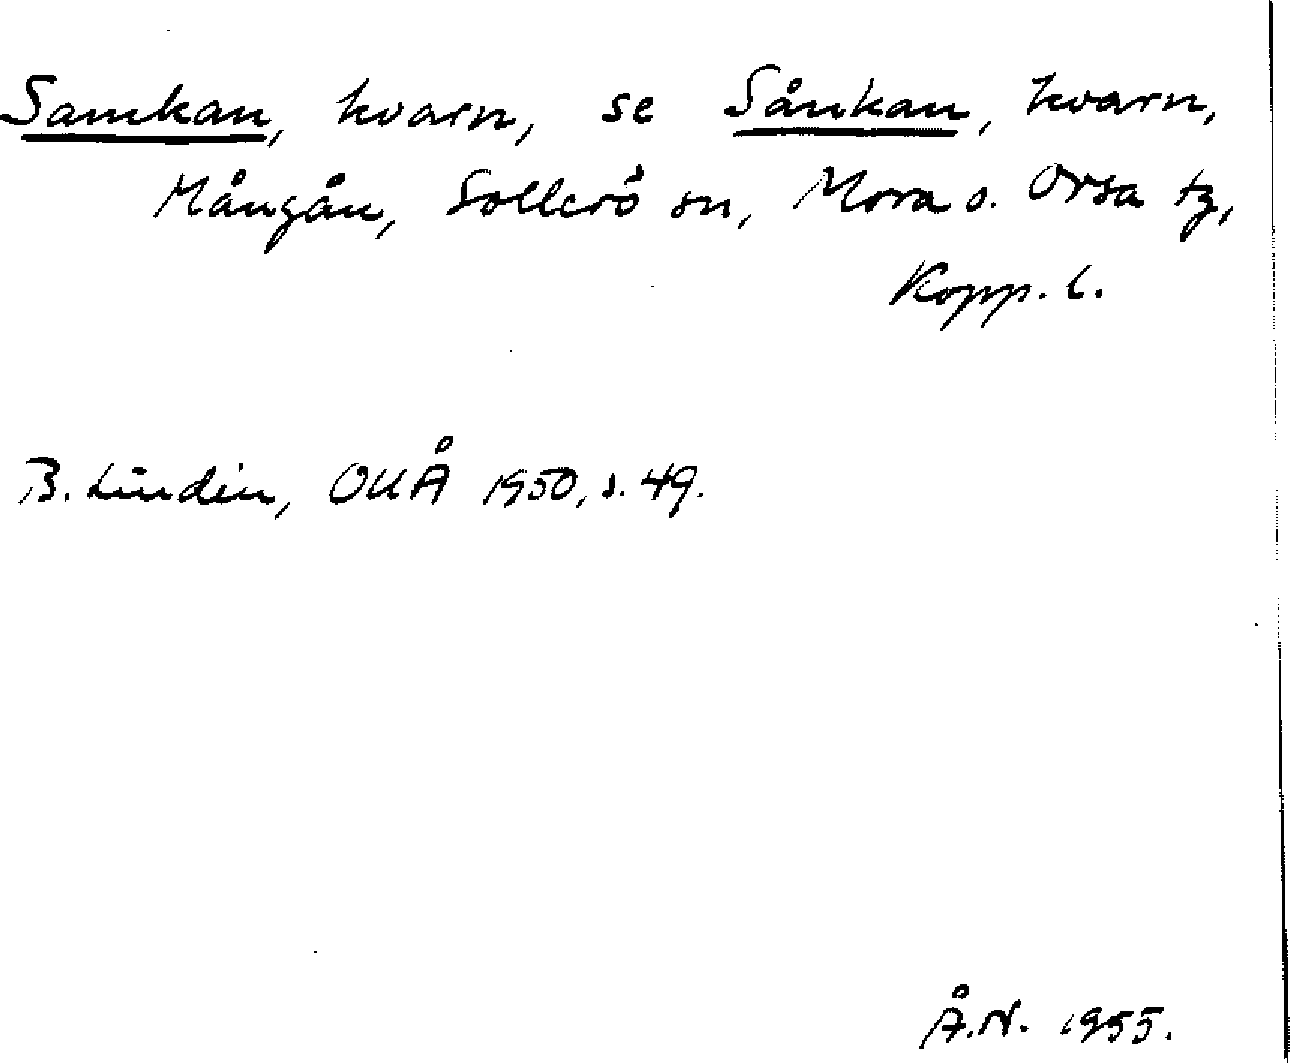 Samkan, kvarn, se Sånkan, kvarn,
Mångån, Sollerö sn, Mora o. Orsa tg,
Kopp. l.
B. Lindén, OUÅ 1950, s. 49.
Å.N. 1955.